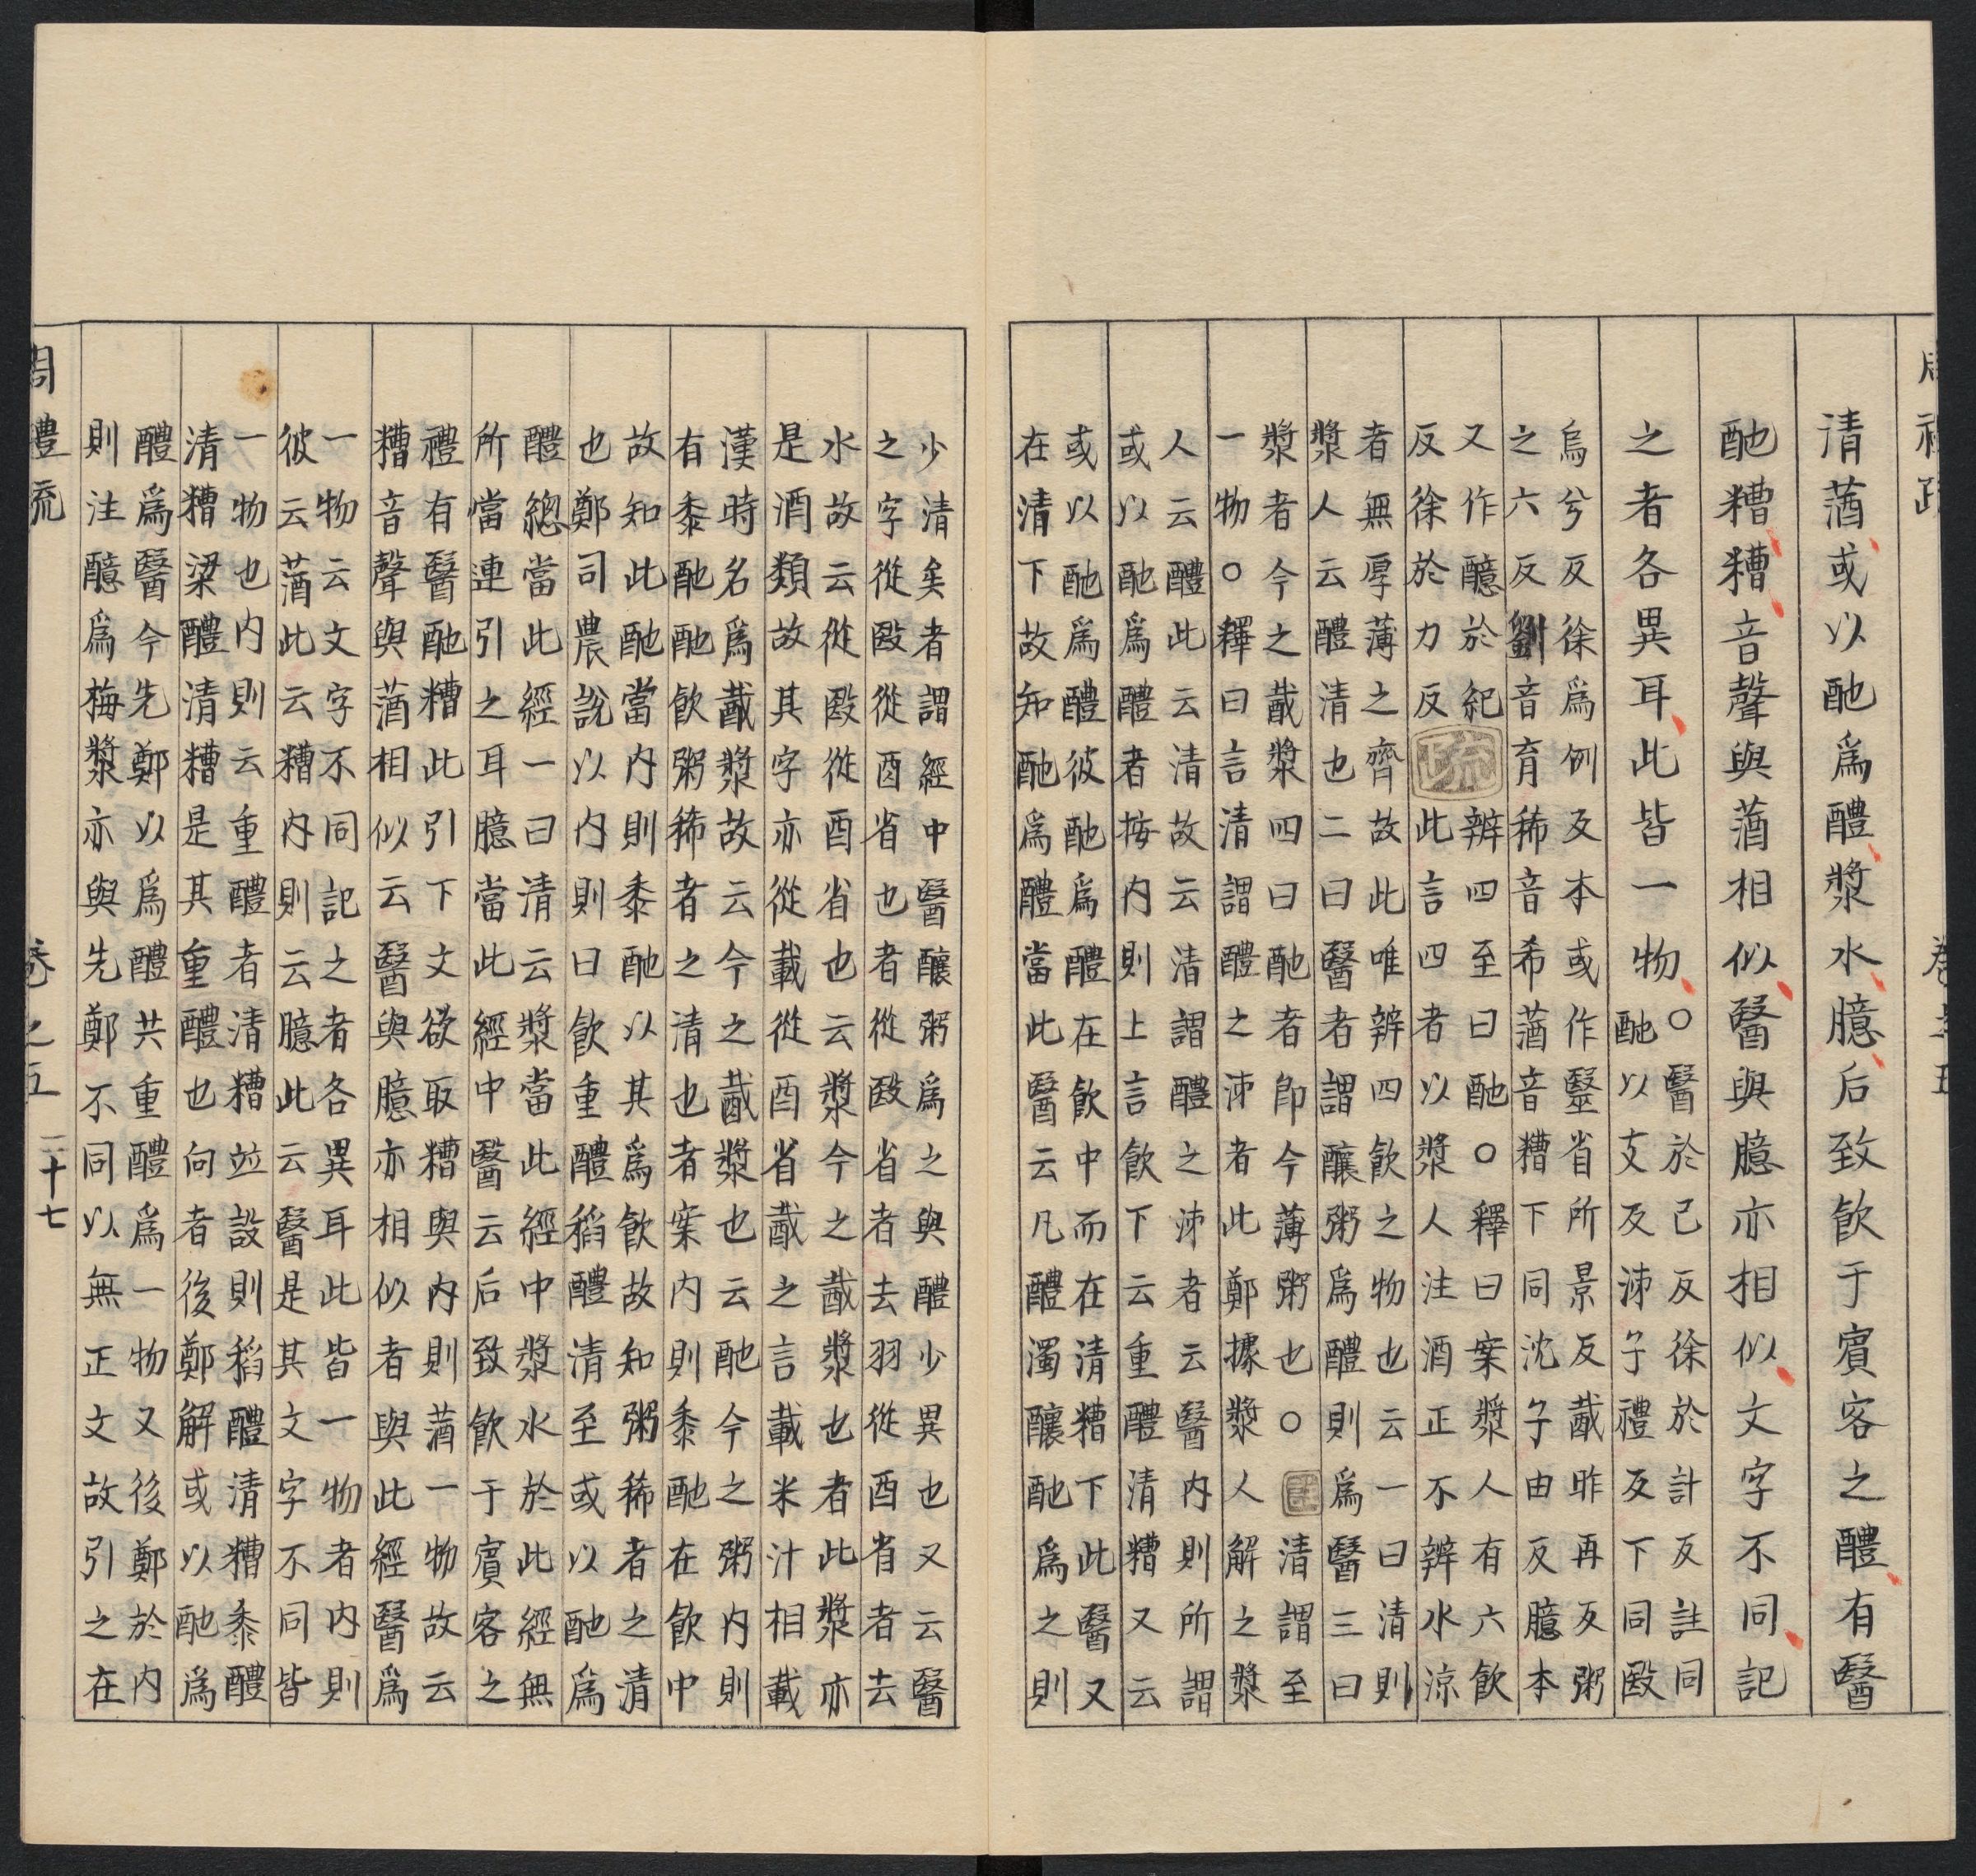 清蒏或以酏爲醴漿水臆后致飲于賓客之醴有醫
酏糟糟音聲與蒏相似醫與臆亦相似文字不同記
之者各異耳此皆一物〇醫於己反徐於計反註同
酏以支反泲子禮反下同殹
烏兮反徐爲例及本或作毉省所景反酨昨再反粥
之六反劉音育稀音希蒏音糟下同沈子由反臆本
又作醷於紀
反徐於力反
疏
辨四至曰酏〇釋曰案漿人有六飲
此言四者以漿人注酒正不辨水涼
者無厚薄之齊故此唯辨四飲之物也云一曰清則
漿人云醴清也二曰醫者謂釀粥爲醴則爲醫三曰
漿者今之酨漿四曰酏者即今薄粥也〇注清謂至
一物〇釋曰言清謂醴之泲者此鄭據漿人解之漿
人云醴此云清故云清謂醴之泲者云醫内則所謂
或以酏爲醴者按内則上言飲下云重醴清糟又云
或以酏爲醴彼酏爲醴在飲中而在清糟下此醫又
在清下故知酏爲醴當此醫云凡醴濁釀酏爲之則
少清矣者謂經中醫釀粥爲之與醴少異也又云醫
之字從殹從酉省也者從殹省者去羽從酉省者去
水故云從殹從酉省也云漿今之酨漿也者此漿亦
是酒類故其字亦從載從酉省酨之言載米汁相載
漢時名爲酨漿故云今之酨漿也云酏今之粥内則
有黍酏酏飲粥稀者之清也者案内則黍酏在飲中
故知此酏當内則黍酏以其爲飲故知粥稀者之清
也鄭司農說以内則曰飲重醴稻醴清至或以酏爲
醴總當此經一曰清云漿當此經中漿水於此經無
所當連引之耳臆當此經中醫云后致飲于賓客之
禮有醫酏糟此引下文欲取糟與内則蒏一物故云
糟音聲與蒏相似云醫與臆亦相似者與此經醫爲
一物云文字不同記之者各異耳此皆一物者内則
彼云蒏此云糟内則云臆此云醫是其文字不同皆
一物也内則云重醴者清糟並設則稻醴清糟黍醴
清糟粱醴清糟是其重醴也向者後鄭解或以酏爲
醴爲醫今先鄭以爲醴共重醴爲一物又後鄭於内
則注醷爲梅漿亦與先鄭不同以無正文故引之在
周禮疏 卷之五 二十七